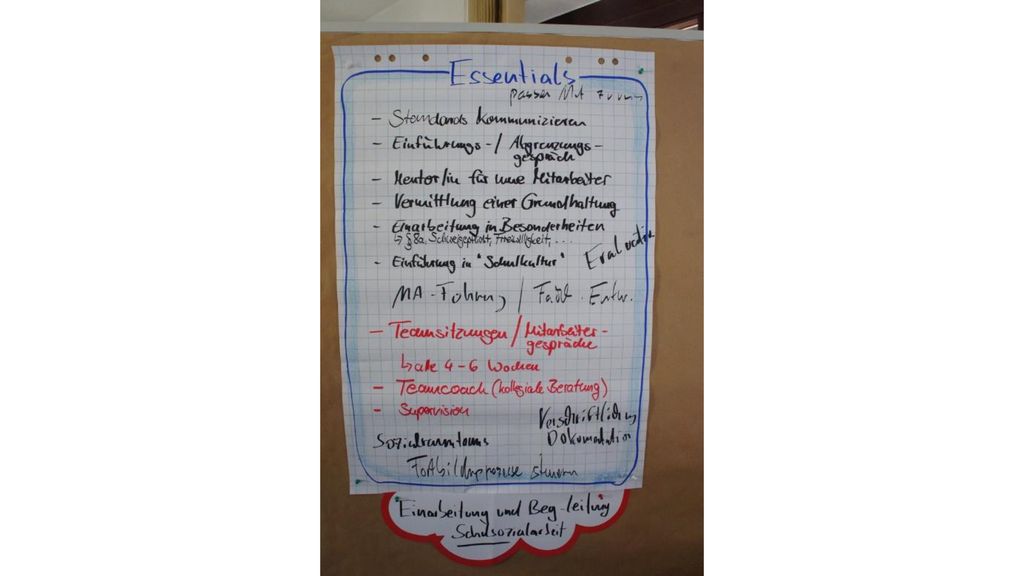 Essentials
passen MA
- Standards kommunizieren
- Einführungs-/Abgrenzungs-
gespräch
- Mentor/in für neue Mitarbeiter
- Vermittlung einer Grundhaltung
- Einarbeitung in Besonderheiten
↳ §8a, Schweigepflicht, Freiwilligkeit, ...
Evaluation
- Einführung in "Schulkultur"
MA-Führung / Entw.
- Teamsitzungen / Mitarbeiter-
gespräche
↳ alle 4-6 Wochen
- Teamcoach (kollegiale Beratung)
- Supervision
Verschriftlichung
Dokumentation
Sozialraumteams
Fortbildungsprozesse steuern
Einarbeitung und Begleitung
Schulsozialarbeit